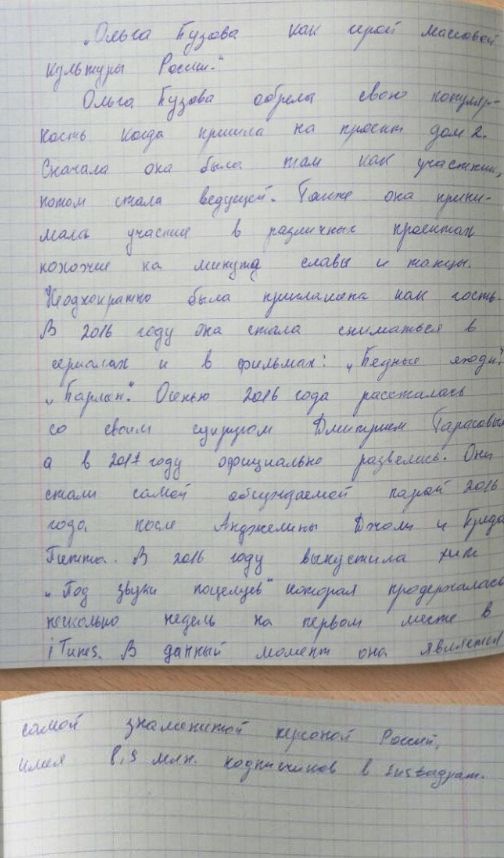 „Ольга Бузова как герой массовой
культуры России."
Ольга Бузова обрела свою популяр-
ность когда пришла на проект дом 2.
Сначала она была там как участник,
потом стала ведущей. Также она прини-
мала участие в различных проектах
похожие на минута славы и танцы.
Неоднократно была приглашена как гость.
В 2016 году она стала сниматься в
сериалах и в фильмах: „Бедные люди",
„Бармен". Осенью 2016 года рассталась
со своим супругом Дмитрием Тарасовым
а в 2017 году официально развелись. Они
стали самой обсуждаемой парой 2016
года, после Анджелины Джоли и Брэда
Питта. В 2016 году выпустила хит
„Под звуки поцелуев" которая продержалась
несколько недель на первом месте в
iTunes. В данный момент она является
самой знаменитой персоной России,
имея 8,5 млн. подписчиков в instagram.